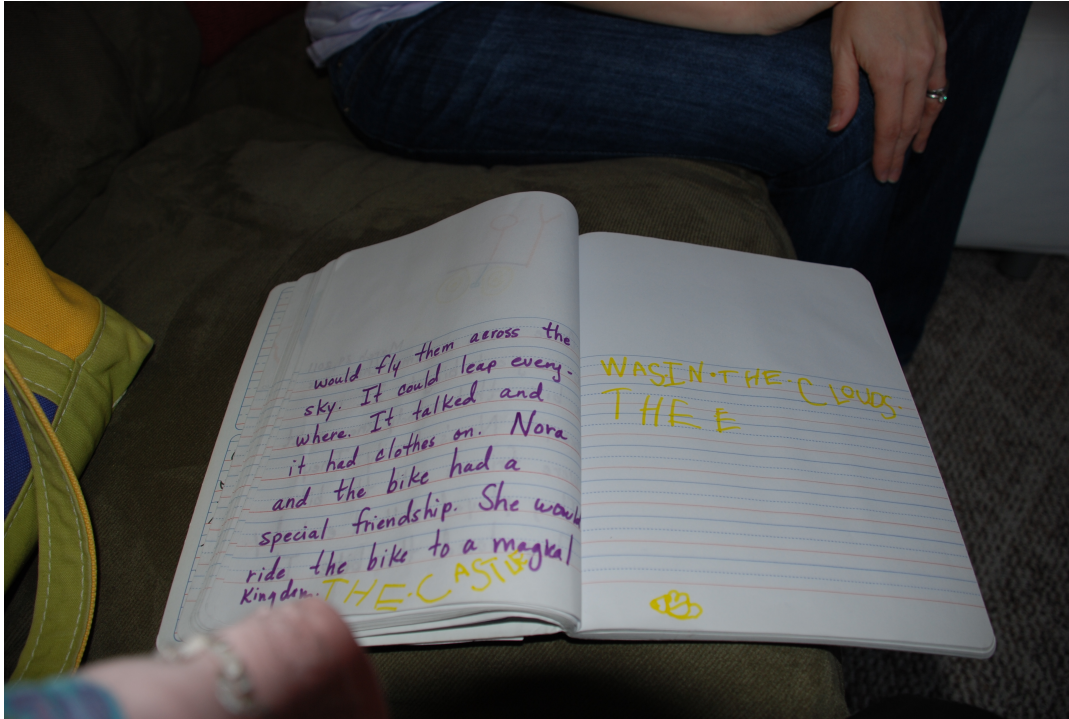 would fly them across the
sky. It could leap every-
where. It talked and
it had clothes on. Nora
and the bike had a
special friendship. She would
ride the bike to a magkal
Kingdom. THE·CASTLE
WASIN·THE·CLOUDS
THE E